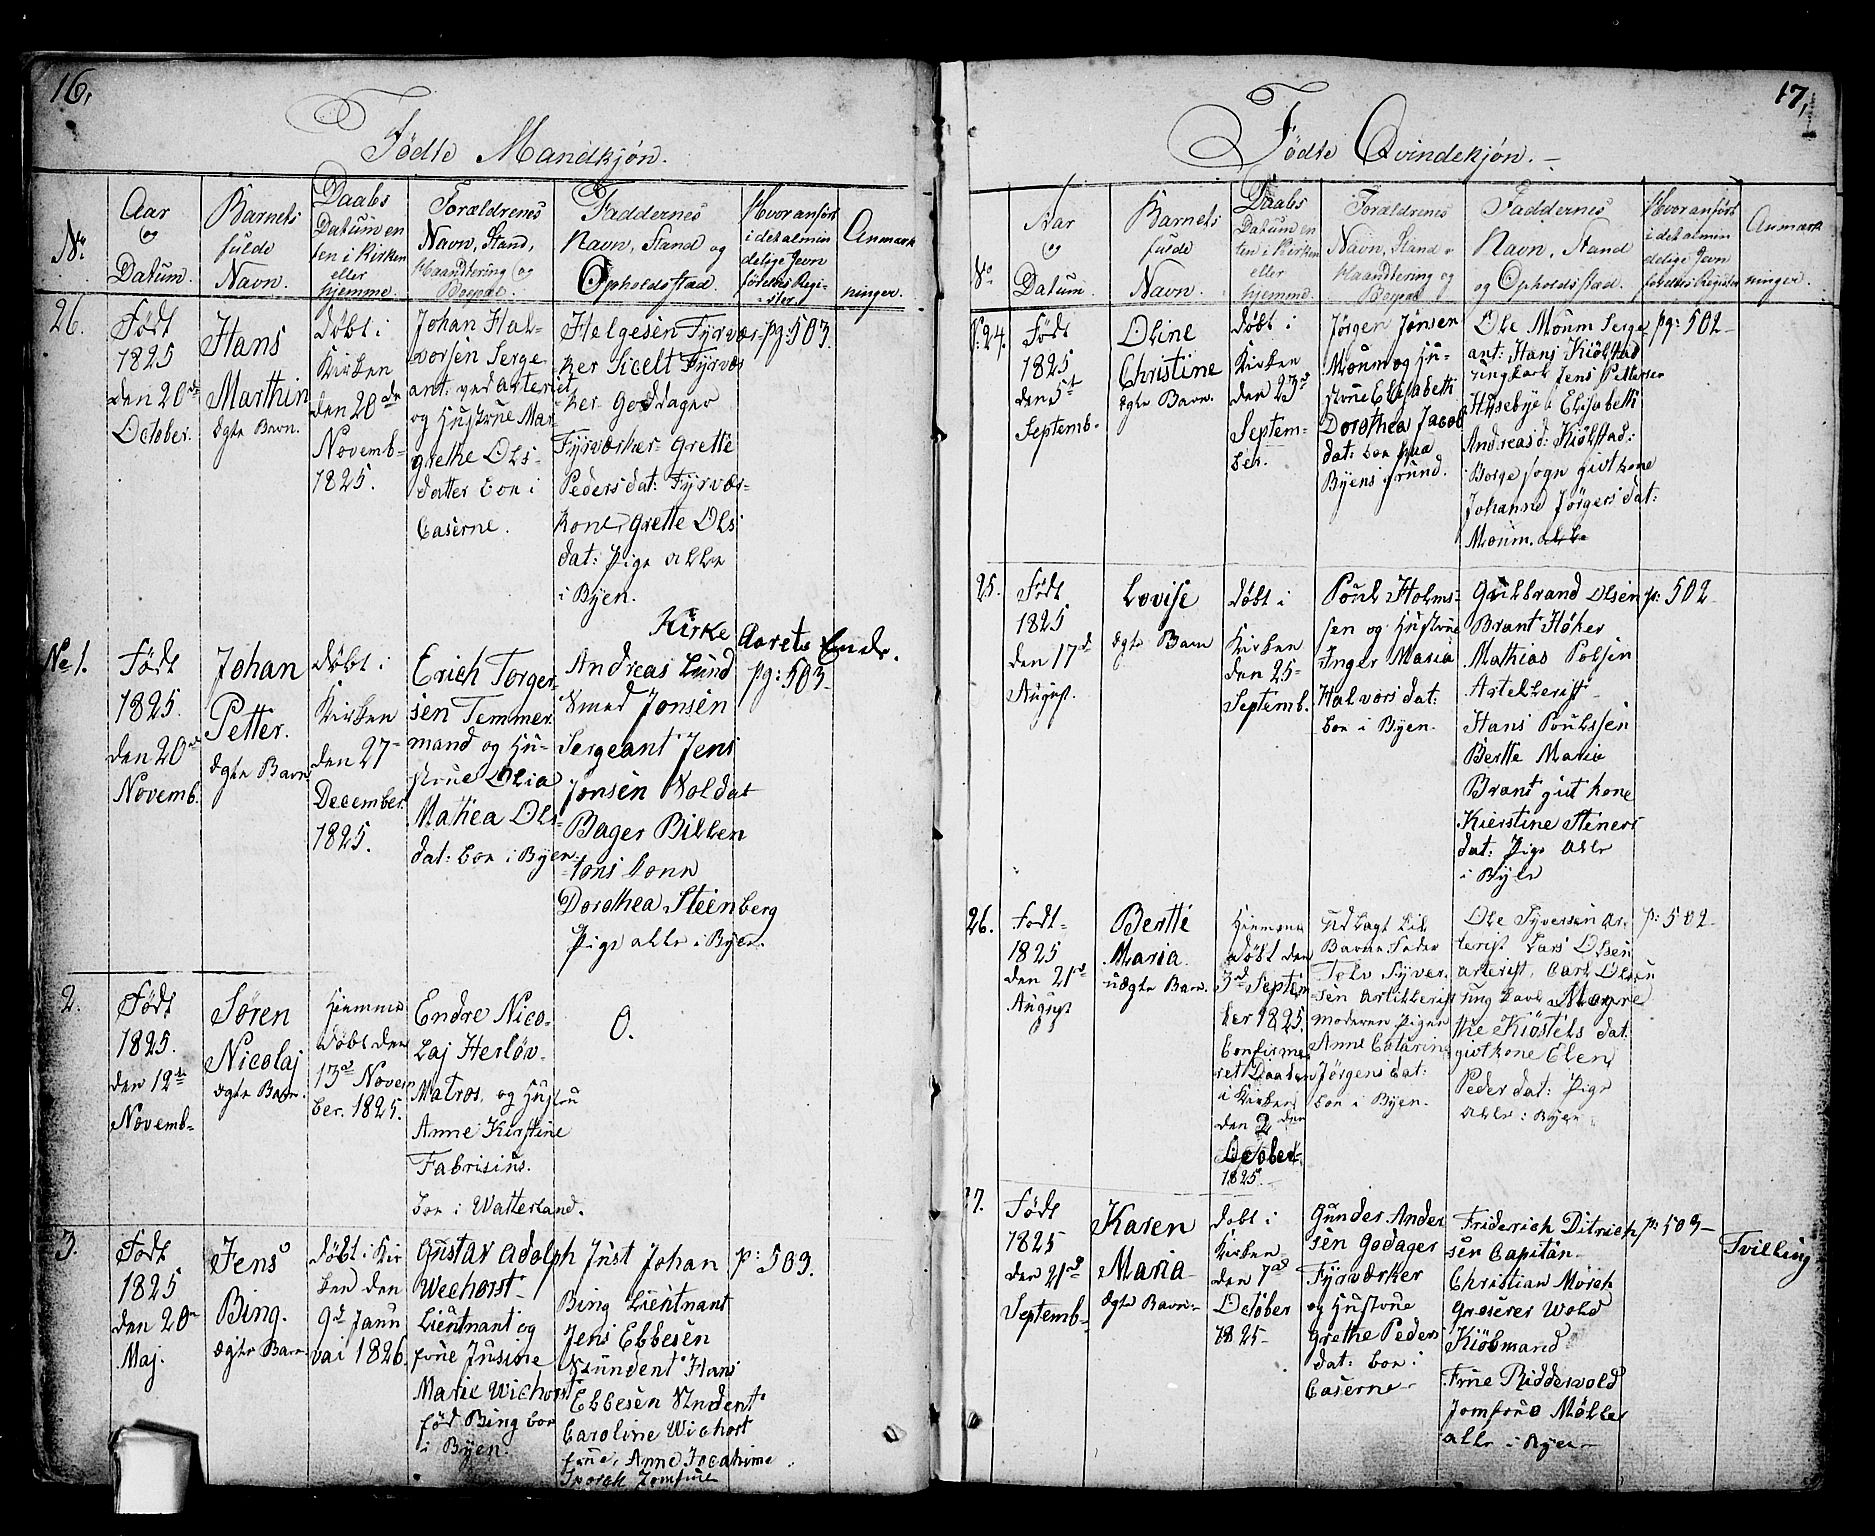 16,
Fødte Mandkjøn.
No.
Aar
og
Datum.
Barnets
fulde
Navn.
Daabs
Datum en
ten i Kirken
eller
hjemme.
Forældrenes
Navn, Stand,
Haandtering og
Bopæl.
Faddernes
Navn, Stand og
Opholdsstad.
Hvor anført
i det almin
delige Jevn
førelses Regi-
ster
Anmærk
ninger.
26.
Født
1825
den 20de
October.
Hans
Marthin
Ægte Barn.
Døbt i
Kirken
den 20de
Novemb-
1825.
Johan Hal-
vorsen Serge-
ant ved arteriet
og Hustrue Mar-
grethe Ols-
datter boe i
Caserne.
Helgesen Fyrvær-
ker Sicelt Fyrvær
ker Goddager
Fyrværker Grette
Peders dat: Fyrvær-
kone, Grette Ols
dat: Pige alle
i Byen.
pg: 503.
Kirke Aarets Ende.
No 1.
Født
1825.
den 20de
Novemb.
Johan
Petter.
Ægte Barn
Døbt i
Kirken
den 27-
December.
1825.
Erich Torger-
sen Temmer
mand og Hu-
strue Olia
Mathea Ols-
dat: boe i Byen.
Andreas Lund
Smed Jonsen
Sergeant Jens
Jonsen Soldat
Bager Billen
tons Kone
Dorothea Steenberg
Pige alle i Byen.
pg: 503-
2.
Født
1825.
den 12te
Novemb-
Søren
Nicolaj
Ægte Barn.
Hiemme
Døbt den
13de Novem
ber. 1825.
Endre Nico-
laj Herløv-
Matros, og Hustru
Anne Kirstine
Fabrisius.
boe i Watterland.
0.
3.
Født
1825
den 20de
Maj.
Jens
Bing.
Ægte Barn
Døbt i Kir
ken den
9d Janu
vai 1826.
Gustav Adolph
Wechorst-
Lieutnant og
frue Jusine
Marie Wichorst
fød Bing boe
i Byen.
Just Johan
Bing Lieutnant
Jens Ebbesen
Stundent Hans
Ebbesen Student
Caroline Wichorst
frue, Anne Joachime
Jomfrue
p: 503.
17,
Fødte Qvindekjøn.
No.
Aar
og
Datum.
Barnets
fulde
Navn.
Daabs
Datum en
ten i Kirken
eller
hjemme
Forældrenes
Navn, Stand,
Haandtering og
Bopæl
Faddernes
Navn, Stand
og Opholdsstad.
Hvor anført
i det almin
delige Jevn
førelses Register
Anmærk
ninger.
No 24.
Født
1825
den 5t
Septemb-
Oline
Christine
Ægte Barn.
Døbt i
Kirken
den 23d
Septem-
ber.
Jørgen Jønsen
Moum og Hu-
strue Elisabeth
Dorothea Jacob
dat: boe paa
Byens Grund.
Ole Moum Serge
ant: Hans Kiølstad
Ungkarl Jens Pettersen
Husebye Elisabeth
Andreasd: Kiølstad:
i Borge sogn givt kone
Johanne Jørgers dat:
Moum.
pg: 502-
25.
Født
1825
den 17d
August.
Lovise
Ægte Barn
Døbt i
Kirken
den 25-
Septemb.
Poul Holms-
sen og Hustrue
Inger Maria
Halvors dat:
boe i Byen.
Gulbrand Olsen
Brant Høker
Mathias Polsen
Artellerist
Hans Poulssen
Bertte Marie
Brant givt kone
Kierstine Steners
dat: Pige alle
i Byen
p: 502-
26.
Født-
1825
den 21d
August
Bertte
Maria
uægte Barn.
Hiemme
Døbt den
3d Septem
ber 1825.
Confirme
ret Daaben
i Kirken
den 2den
October
1825.
Udlagt til
Barne Fader
Tolv Syver-
sen Artillerist
Moderen Pigen
Anne Catarine
Jørgens dat:
boe i Byen.
Ole Syversen Ar-
terist Lars Olsen
arterist, Carl Olsen
Ung Karl Magre
the Kiøstels dat:
givt kone Elen
Peder dat: Pige
alle i Byen
p: 502-
7.
Født
1825
den 21d
Septemb-
Karen
Maria
Ægte Barn-
Døbt i
Kirken-
den 7ad
October
1825-
Gunder Ander
sen Godager
Fyrværker
og Hustrue
Grethe Peders
dat: boe i
Caserne-
Friderich Ditrich
sen Capitan-
Christian Mørch
Grosurer Wold
Kiøbmand
Frue Ridderwold
Jomfrue Møller
alle i Byen-
p: 503-
Tvilling